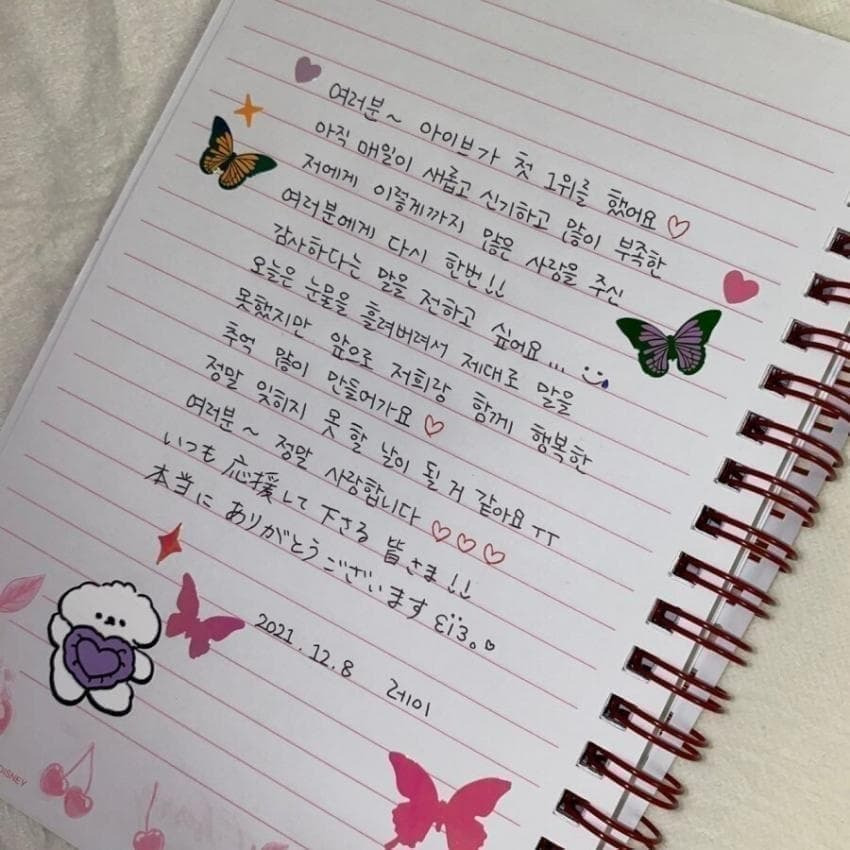 여러분~ 아이브가 첫 1위를 했어요♡
아직 매일이 새롭고 신기하고 많이 부족한
저에게 이렇게까지 많은 사랑을 주신
여러분에게 다시 한번!!
감사하다는 말을 전하고 싶어요...
오늘은 눈물을 흘려버려서 제대로 말을
못했지만 앞으로 저희랑 함께 행복한
추억 많이 만들어가요♡
정말 잊히지 못 할 날이 될 거 같아요ㅠㅠ
여러분~ 정말 사랑합니다♡♡♡
いつも応援して下さる皆さま!!
本当にありがとうございます ε¨̮3。♡
2021.12.8 레이
DISNEY